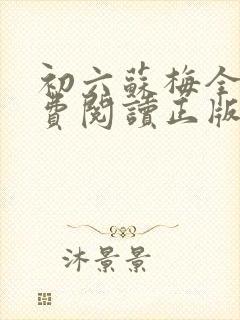 初六蘇梅全
費閱讀正版
沐景景